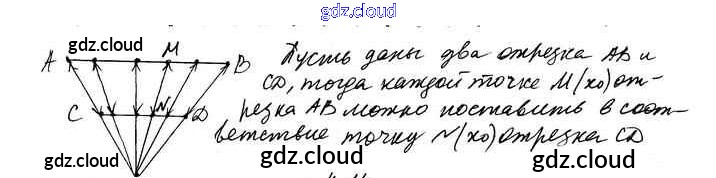 gdz.cloud
gdz.cloud
A M B
Пусть даны два отрезка AB и
gdz.cloud
CD, тогда каждой точке M(x₀) от-
C N D
резка AB можно поставить в соот-
ветствие точку N(x₀) отрезка CD
gdz.cloud
gdz.cloud